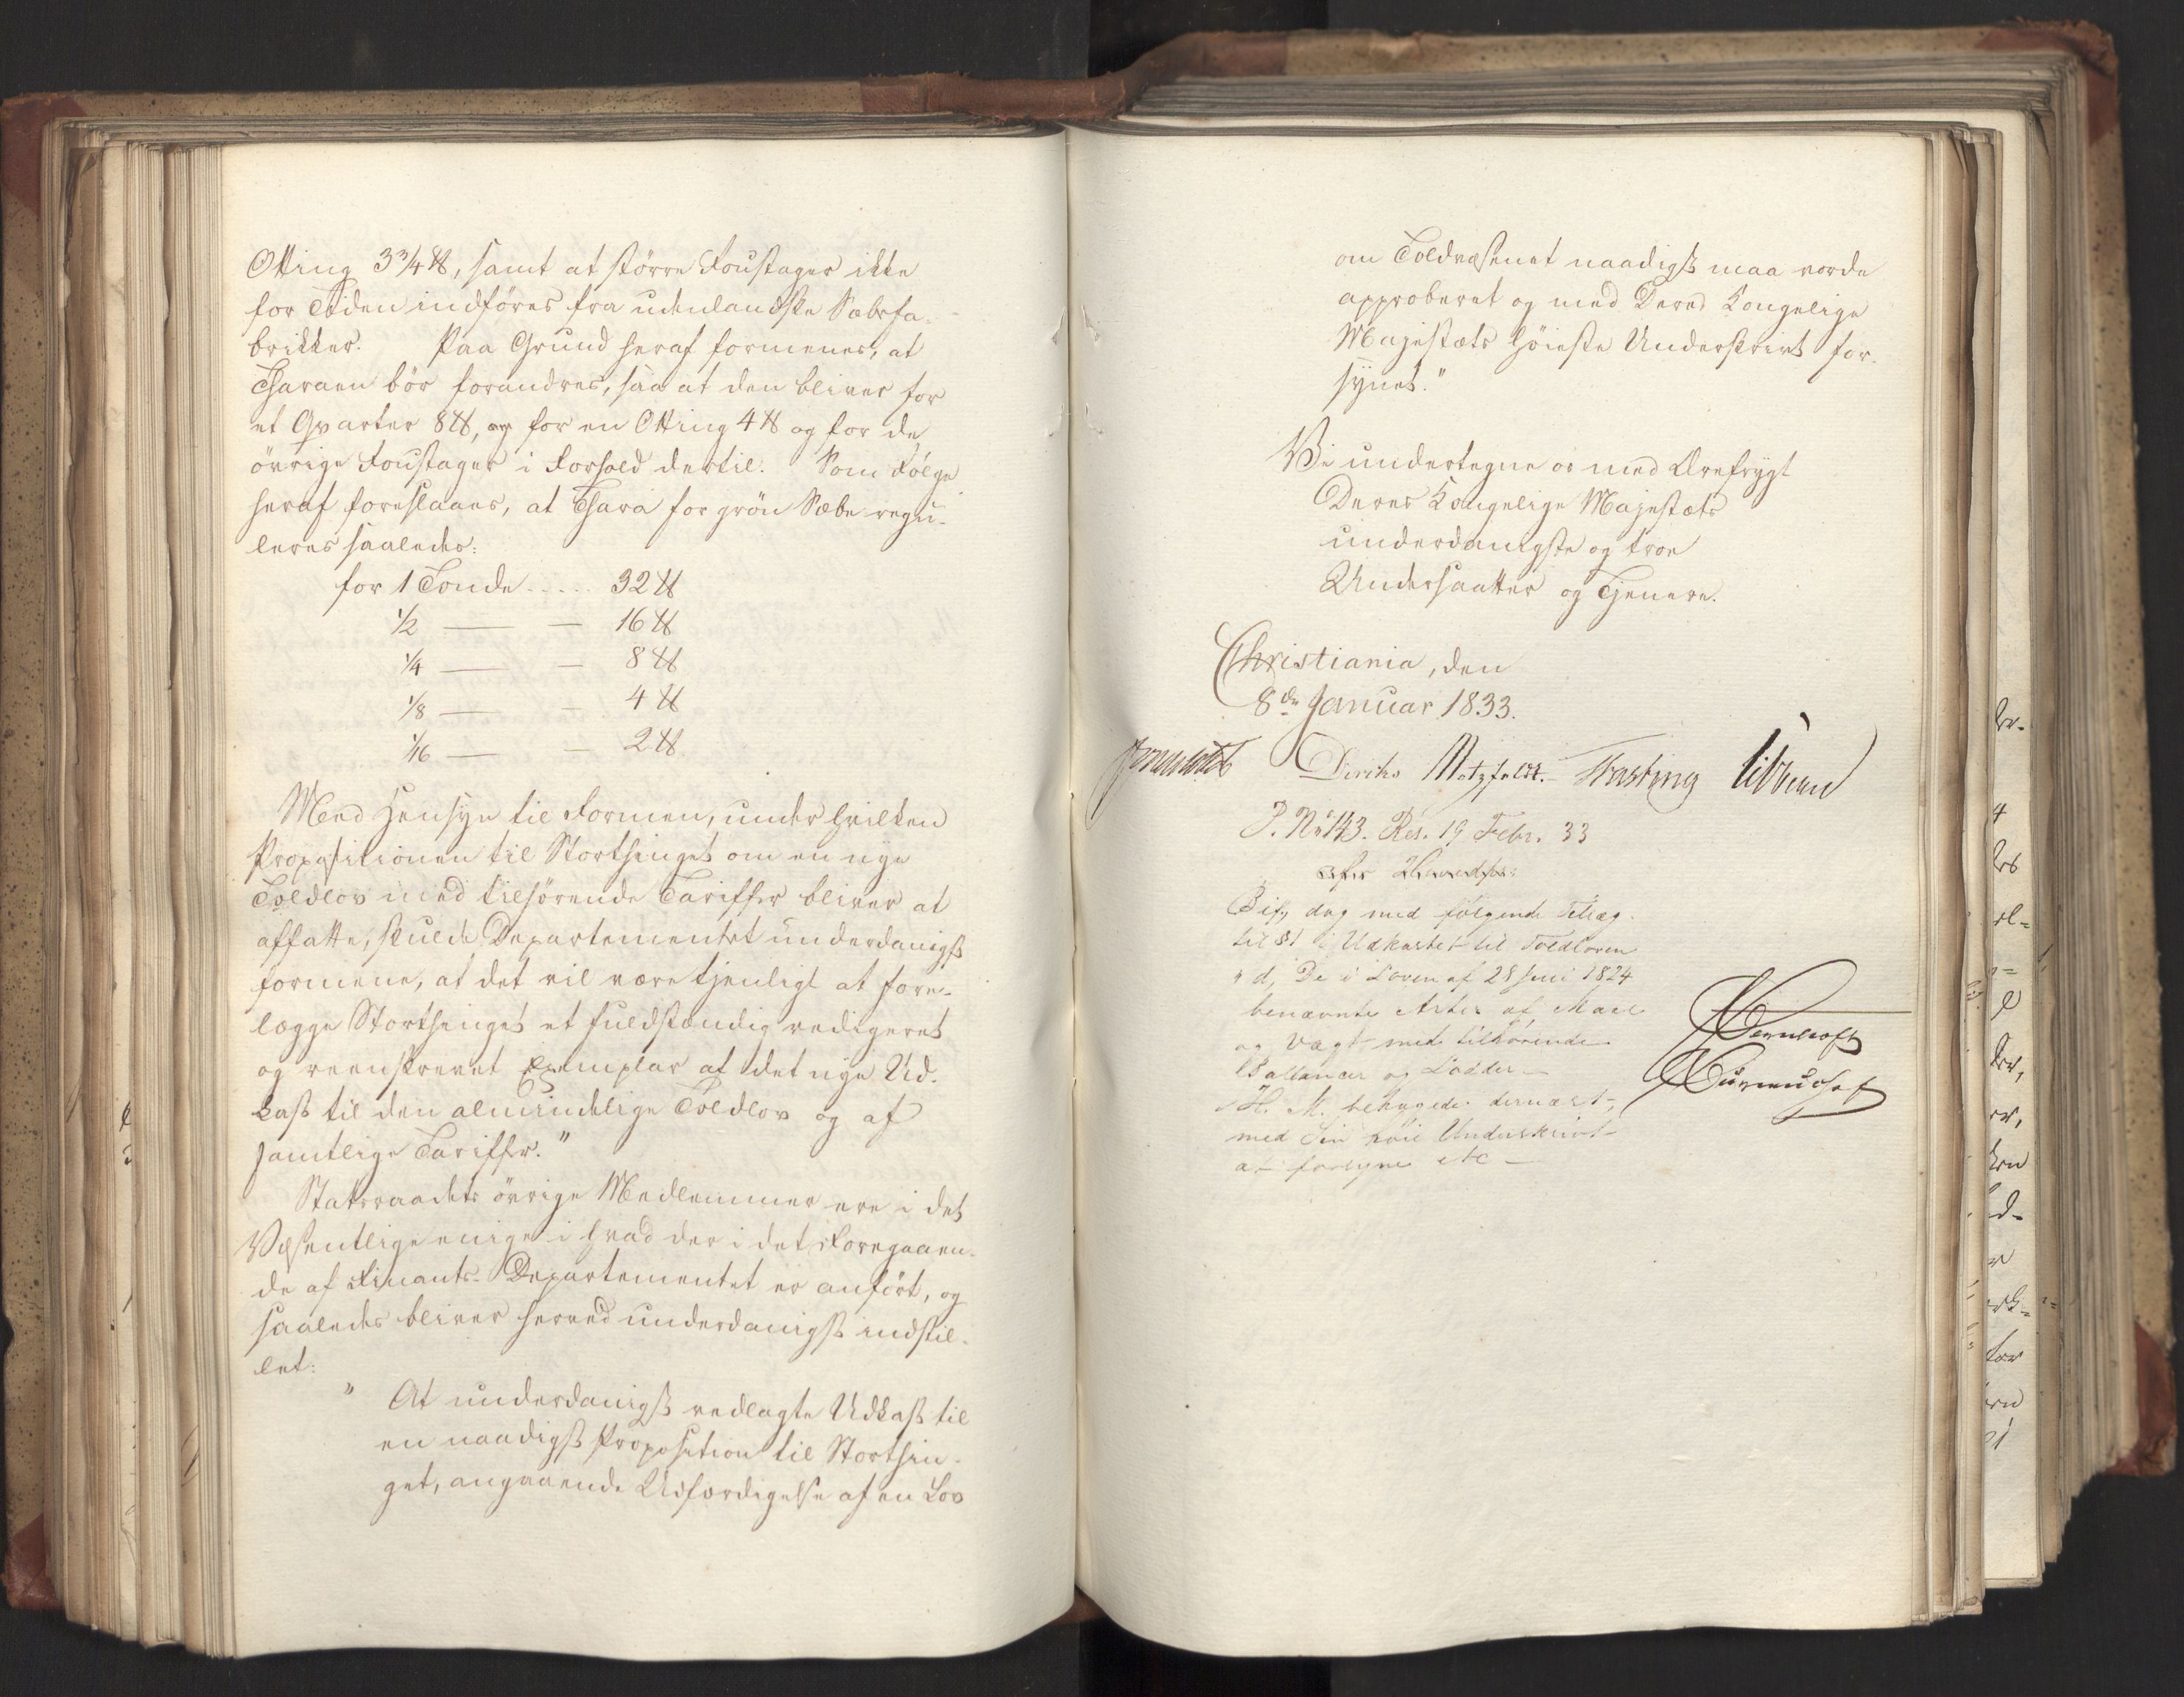 Otting 3 3/4 ℔, samt at större Foustager ikke
for Tiden indföres fra udenlandske Sæbefa-
brikker. Paa Grund heraf formenes, at
Tharaen bör forandres, saa at den bliver for
et Qvarter 8 ℔, og for en Otting 4 ℔ og for de
övrige Foustager i Forhold dertil. Som Fölge
heraf foreslaaes, at Thara for grön Sæbe regu-
leres saaledes:
for 1 Tonde ..... 32 ℔
1/2 — — 16 ℔
1/4 — — 8 ℔
1/8 — — 4 ℔
1/16 — — 2 ℔
Med Hensyn til Formen, under hvilken
Propositionen til Storthinget om en nye
Toldlov med tilhörende Tariffer bliver at
affatte, skulde Departementet underdanigst
formene, at det vil være tjenligt at fore-
lægge Storthinget et fuldstændig redigeret
og reenskrevet Exemplar af det nye Ud-
kast til den almindelige Toldlov og af
samtlige Tariffer."
Statsraadets övrige Medlemmer ere i det
Væsentlige enige i hvad der i det Foregaaen-
de af Finants-Departementet er anfört, og
saaledes bliver herved underdanigst indstil-
let:
" At underdanigst vedlagte Udkast til
en naadigst Proposition til Storthin-
get, angaaende Udfærdigelse af en Lov
om Toldvæsenet naadigst maa vorde
approberet og med Deres Kongelige
Majestæts höieste Underskrivt for-
synet."
Vi undertegne os med Ærefrygt
Deres Kongelige Majestæts
underdanigste og troe
Undersaatter og Tjenere.
Christiania, den
8de Januar 1833.
Diriks Motzfeldt. Fasting Vibe
P. No 143. Res. 19 Febr. 33
Bif, dog med fölgende Tillæg
til § 1 i Udkastet til Toldloven
" d, De i Loven af 28 Juni 1824
benævnte Arter af Maal
og Vægt med tilhörende
Ballancer og Lodder —
H. M. behagede dernæst
med Sin höie Underskrivt
at forsyne etc —